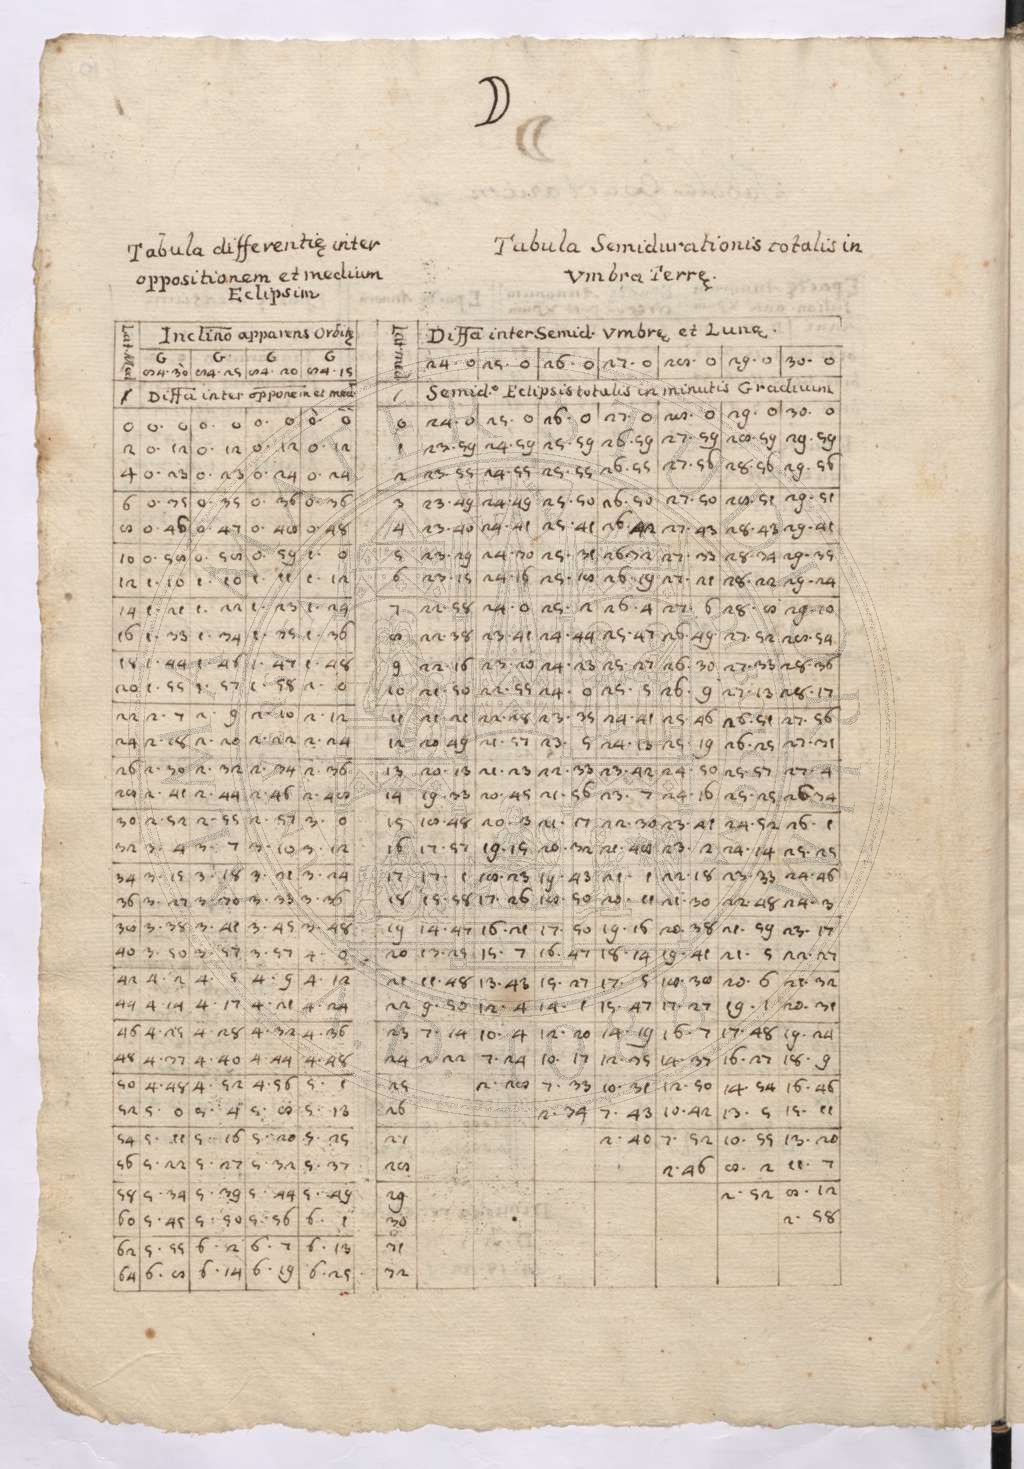 D
Tabula differentię inter
oppositionem et medium
Eclipsim
Lat. Med.
Inclino apparens Orbitę
G G G G
84·30 84·25 84·20 84·15
Diffa inter opponem et med.
0 0·0 0·0 0·0 0·0
2 0·12 0·12 0·12 0·12
4 0·23 0·23 0·24 0·24
6 0·35 0·35 0·36 0·36
8 0·46 0·47 0·48 0·48
10 0·58 0·58 0·59 1·0
12 1·10 1·10 1·11 1·12
14 1·21 1·22 1·23 1·24
16 1·33 1·34 1·35 1·36
18 1·44 1·46 1·47 1·48
20 1·55 1·57 1·58 2·0
22 2·7 2·9 2·10 2·12
24 2·18 2·20 2·22 2·24
26 2·30 2·32 2·34 2·36
28 2·41 2·44 2·46 2·48
30 2·52 2·55 2·57 3·0
32 3·4 3·7 3·10 3·12
34 3·15 3·18 3·21 3·24
36 3·27 3·30 3·33 3·36
38 3·38 3·41 3·45 3·48
40 3·50 3·53 3·57 4·0
42 4·2 4·5 4·9 4·12
44 4·14 4·17 4·21 4·24
46 4·25 4·28 4·32 4·36
48 4·37 4·40 4·44 4·48
50 4·48 4·52 4·56 5·1
52 5·0 5·4 5·8 5·13
54 5·11 5·16 5·20 5·25
56 5·22 5·27 5·32 5·37
58 5·34 5·39 5·44 5·49
60 5·45 5·50 5·56 6·1
62 5·55 6·2 6·7 6·13
64 6·8 6·14 6·19 6·25
Tabula Semidurationis totalis in
Vmbra Terrę.
Lat. med.
Diffa inter Semid. Vmbrę et Lunę.
24·0 25·0 26·0 27·0 28·0 29·0 30·0
Semido. Eclipsis totalis in minutis Graduum
0 24·0 25·0 26·0 27·0 28·0 29·0 30·0
1 23·59 24·59 25·59 26·59 27·59 28·59 29·59
2 23·55 24·55 25·55 26·55 27·56 28·56 29·56
3 23·49 24·49 25·50 26·50 27·50 28·51 29·51
4 23·40 24·41 25·41 26·42 27·43 28·43 29·41
5 23·29 24·30 25·31 26·32 27·33 28·34 29·35
6 23·15 24·16 25·18 26·19 27·21 28·22 29·24
7 22·58 24·0 25·2 26·4 27·6 28·8 29·10
8 22·38 23·41 24·44 25·47 26·49 27·52 28·54
9 22·16 23·20 24·23 25·27 26·30 27·33 28·36
10 21·50 22·55 24·0 25·5 26·9 27·13 28·17
11 21·21 22·28 23·35 24·41 25·46 26·51 27·56
12 20·49 21·57 23·5 24·13 25·19 26·25 27·31
13 20·13 21·23 22·33 23·42 24·50 25·57 27·4
14 19·33 20·45 21·56 23·7 24·16 25·25 26·34
15 18·48 20·3 21·17 22·30 23·41 24·52 26·1
16 17·57 19·15 20·32 21·48 23·2 24·14 25·25
17 17·1 18·23 19·43 21·1 22·18 23·33 24·46
18 15·58 17·26 18·50 20·11 21·30 22·48 24·3
19 14·47 16·21 17·50 19·16 20·38 21·59 23·17
20 13·25 15·7 16·47 18·14 19·41 21·5 22·27
21 11·48 13·43 15·27 17·5 18·38 20·6 21·32
22 9·50 12·4 14·1 15·47 17·27 19·1 20·31
23 7·14 10·4 12·20 14·19 16·7 17·48 19·24
24 2·22 7·24 10·17 12·35 14·37 16·27 18·9
25 2·28 7·33 10·31 12·50 14·54 16·46
26 2·34 7·43 10·42 13·5 15·11
27 2·40 7·52 10·55 13·20
28 2·46 8·2 11·7
29 2·52 8·12
30 2·58
31
32